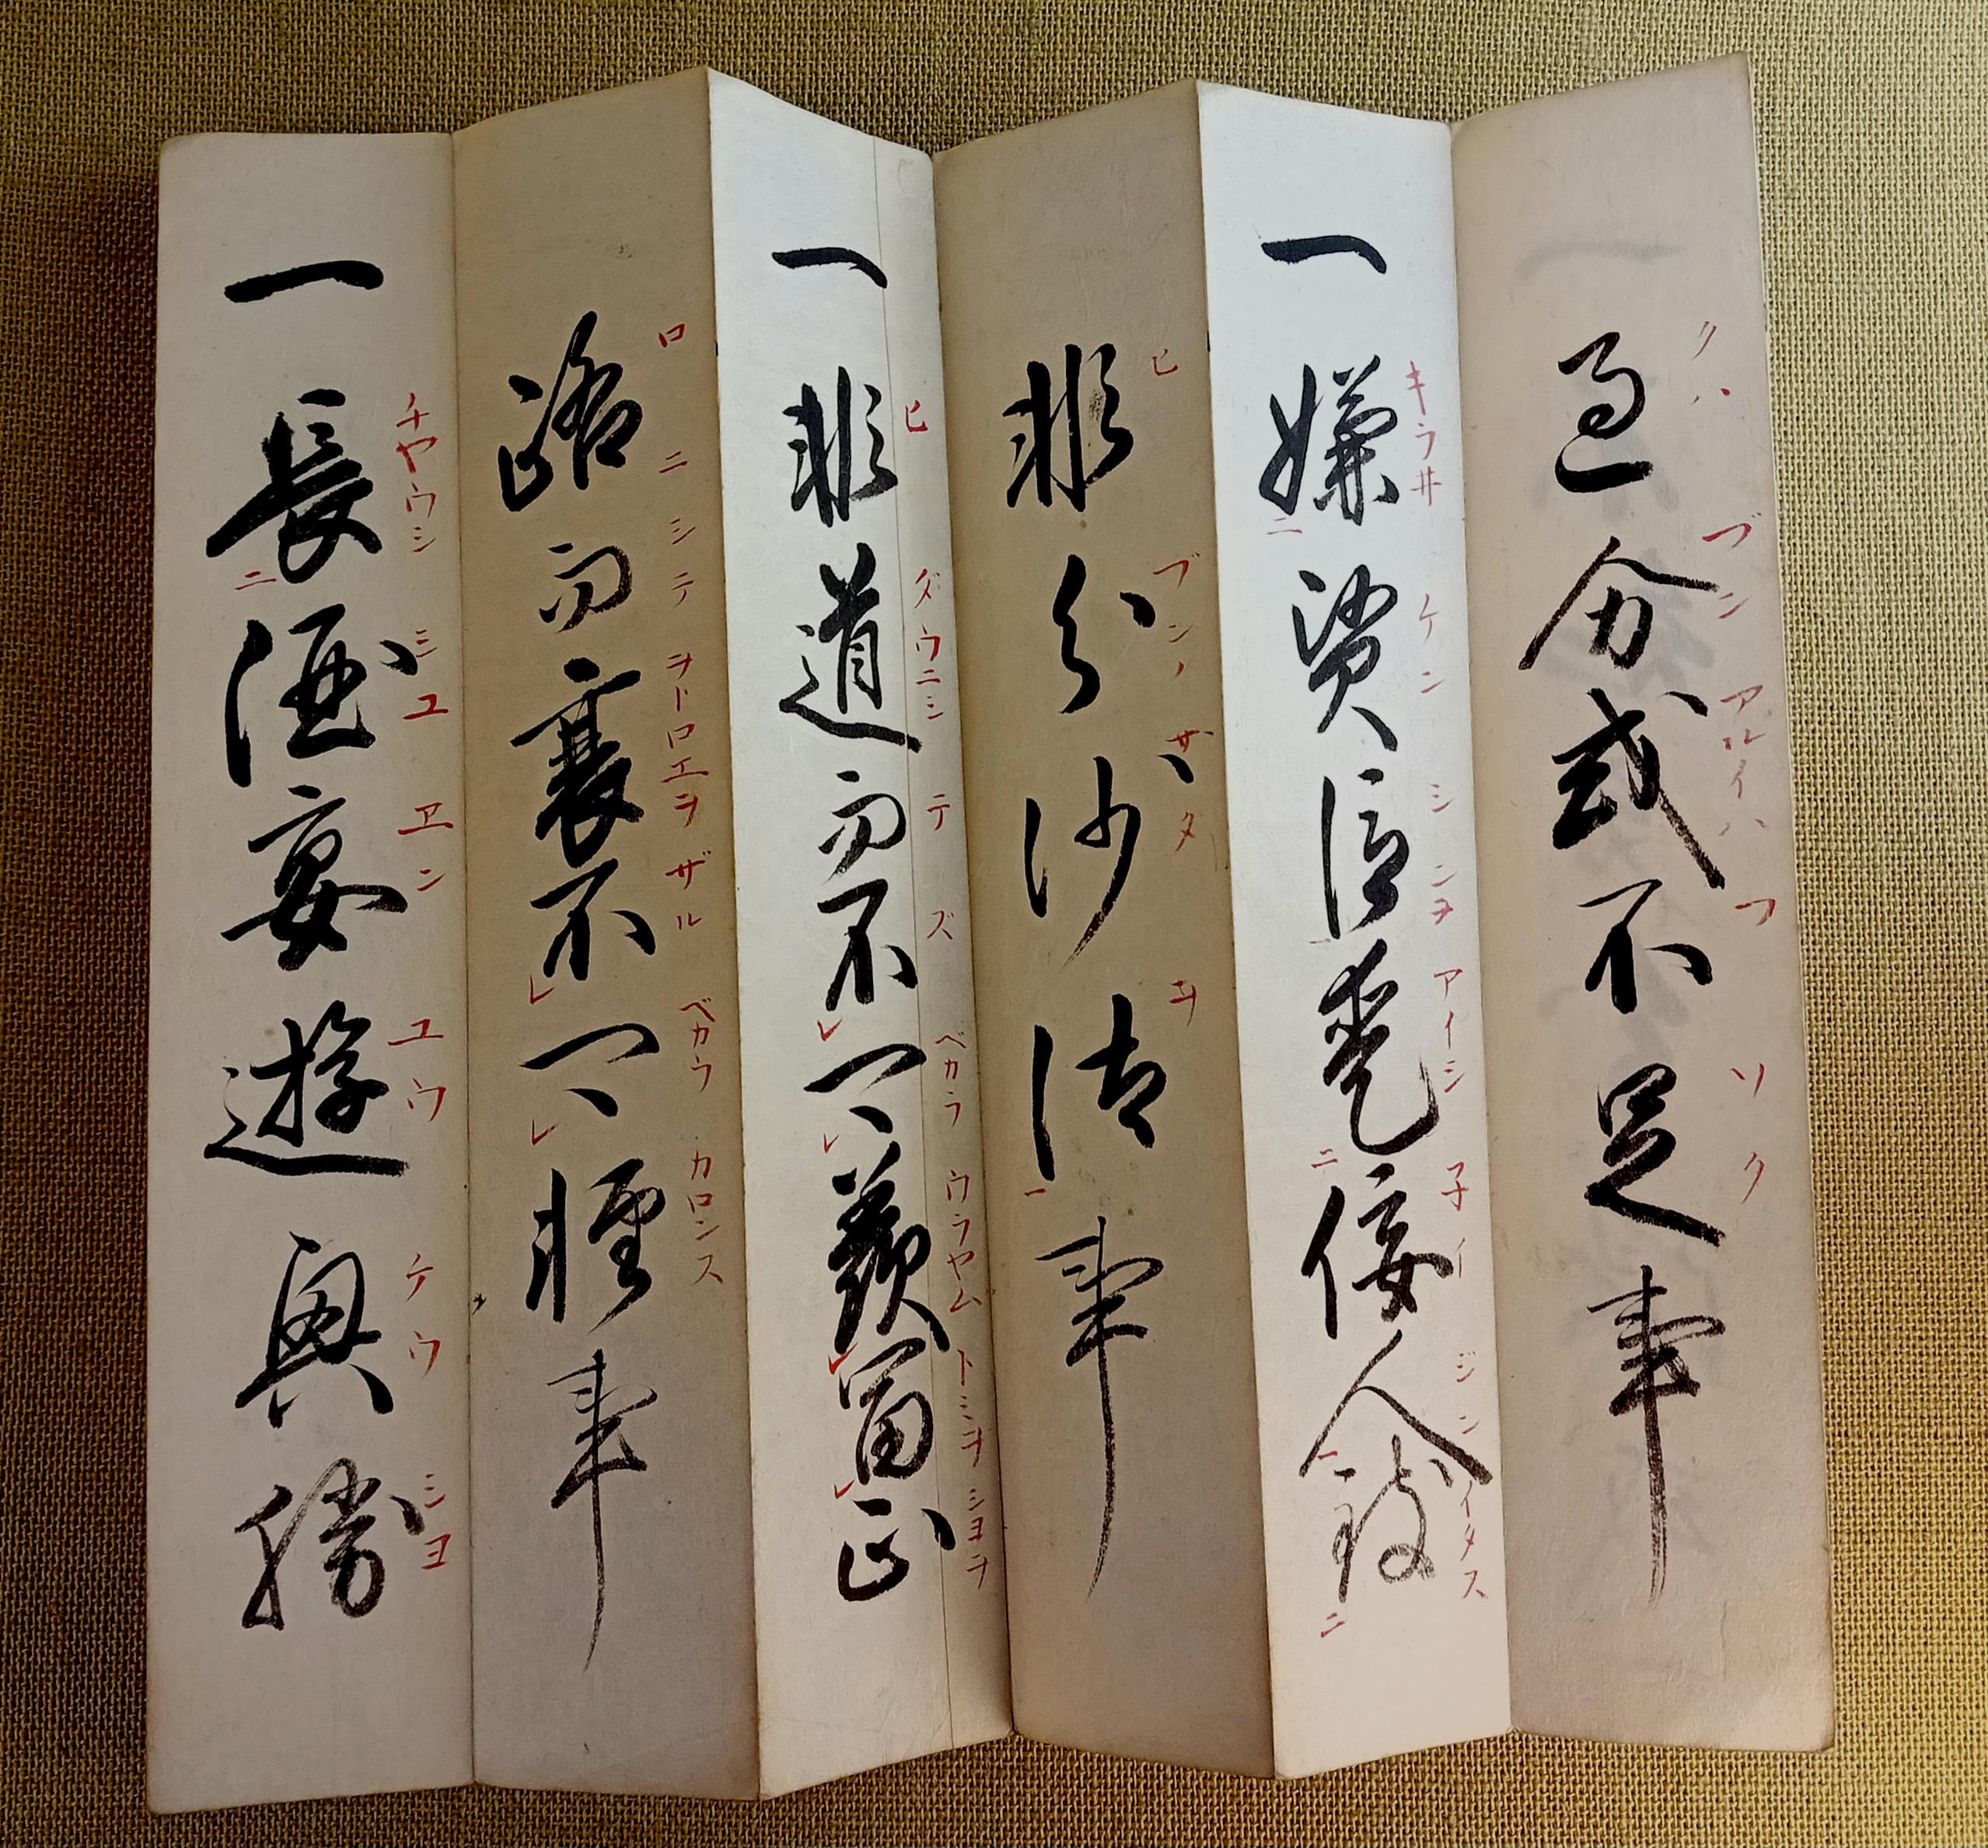 過分或不足事
クハ ブン アルイハ フ ソク
一嫌賢臣愛佞人致
キラ井 ケン シンヲ アイシ 子イ ジン イタス
二 二 一 二
非分沙汰事
ヒ ブンノ サ タ ヲ
一
一非道而不可羨富正
ヒ ダウニシ テ ズ ベカラ ウラヤム トミヲ シヨヲ
レ レ レ レ
路而衰不可軽事
ロ ニ シテ ヲトロエヲ ザル ベカラ カロンス
レ レ
一長酒宴遊興勝
チヤウシ シユ ヱン ユウ ケウ シヨ
二